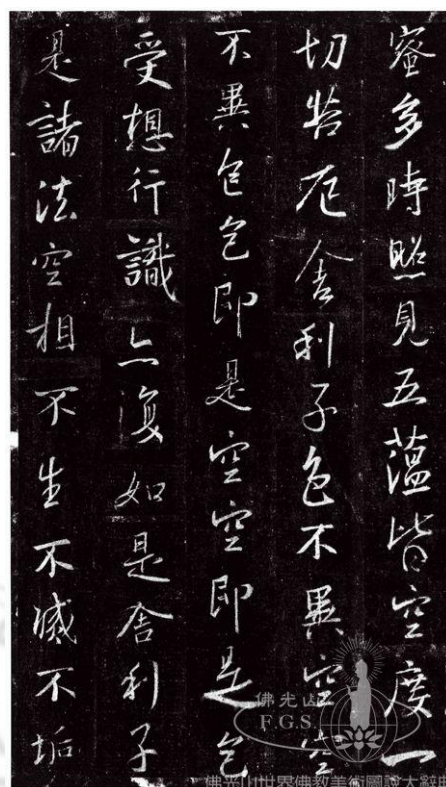 蜜多時照見五蘊皆空度一
切苦厄舍利子色不異空空
不異色色即是空空即是色
受想行識亦復如是舍利子
是諸法空相不生不滅不垢
佛光山
F.G.S.
佛光山世界佛教美術圖說大辭典